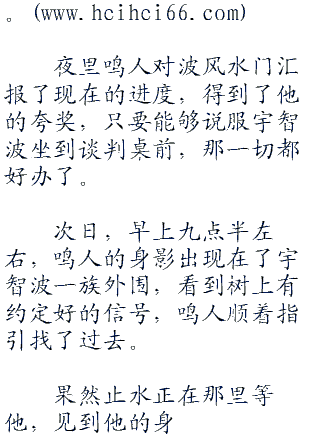 。(www.hcihci66.com)
夜里鸣人对波风水门汇
报了现在的进度，得到了他
的夸奖，只要能够说服宇智
波坐到谈判桌前，那一切都
好办了。
次日，早上九点半左
右，鸣人的身影出现在了宇
智波一族外围，看到树上有
约定好的信号，鸣人顺着指
引找了过去。
果然止水正在那里等
他，见到他的身